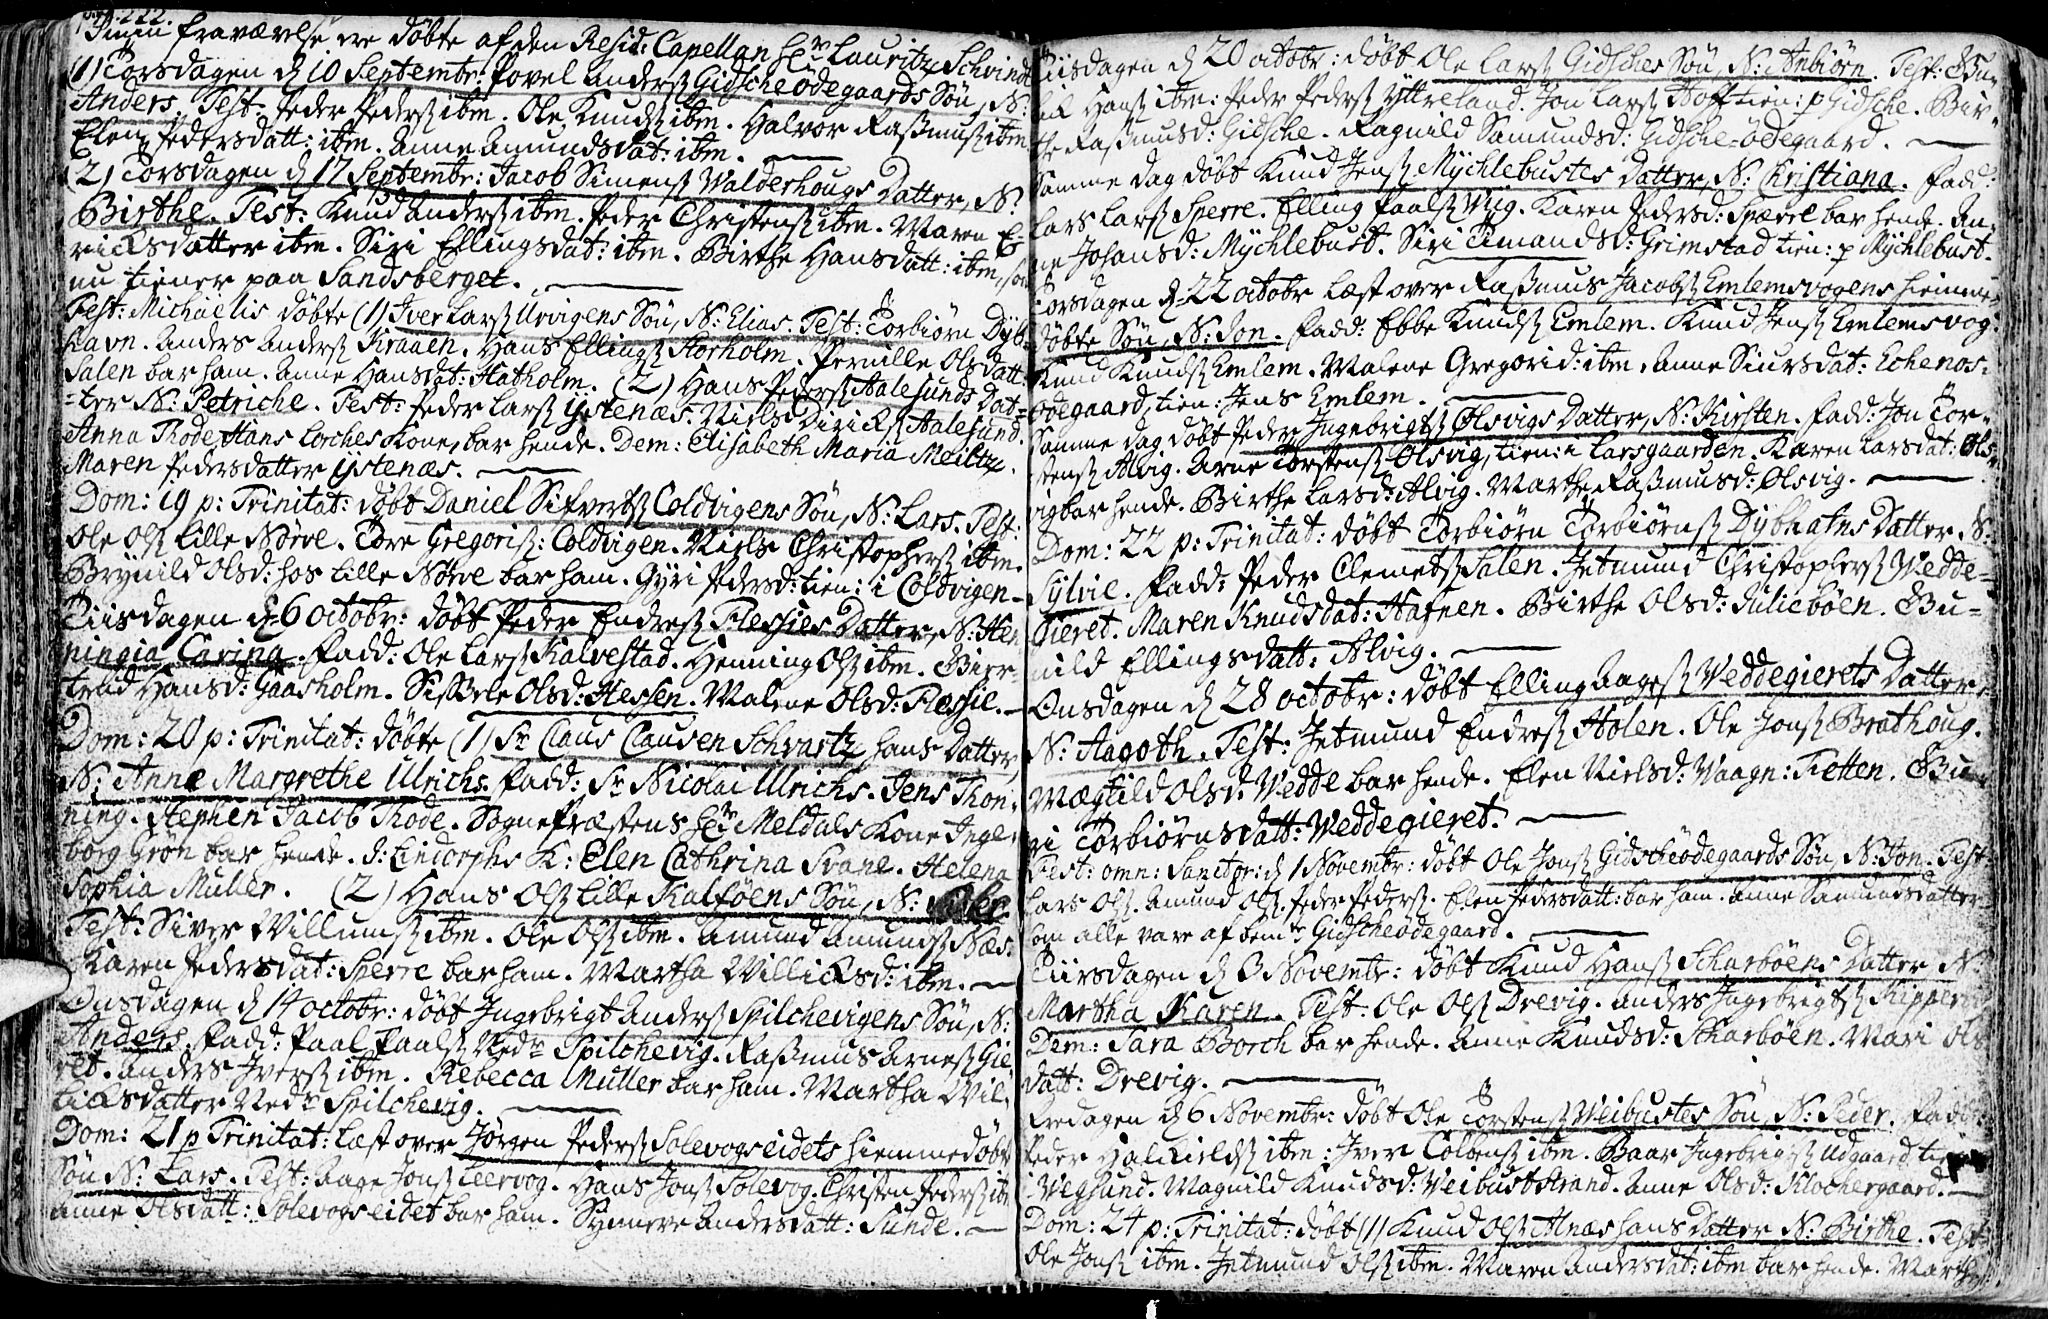 222.
I min fraværelse ere døbte af den Resid: Capellan hr Lauritz Schvindt
(1) Torsdagen d 10 Septembr: Povel Anderss Gidscheødegaards Søn, N:
Anders. Test. Peder Pederss ibm. Ole Knudss ibm. Halvor Rassmuss ibm
Elen Pedersdatt: ibm. Anne Amundsdat: ibm.
(2) Torsdagen d 17 Septembr: Jacob Simenss Walderhougs Datter, N:
Birthe. Test: Knud Anderss ibm. Peder Christenss ibm. Maren E-
ricksdatter ibm. Siri Ellingsdat: ibm. Birthe Hansdatt: ibm, som
nu tiener paa Sandsberget.
Fest: Michaelis døbte (1) Iver Larss Urvigens Søn, N: Elias. Test: Torbiørn Dyb-
havn. Anders Anderss Kraaen. Hans Ellingss Storholm. Pernille Olsdatt:
Salen bar ham. Anne Hansdat: Hatholm. (2) Hans Pederss Aalesunds Dat-
ter N: Petriche. Test: Peder Larss Ystenæs. Niels Dirickss Aalesund.
Anna Thode, Hans Lorches Kone, bar hende. Dem: Elisabeth Maria Meiltze.
Maren Pedersdatter Ystenæs.
Dom: 19 p: Trinitat: døbt Daniel Sifvertss Coldvigens Søn, N: Lars. Test:
Ole Olss Lille Nørve. Tore Gregoriss: Coldvigen. Niels Christopherss ibm.
Brynild Olsd: hos Lille Nørve bar ham. Gyri Pedersd: tien: i Coldvigen.
Tiisdagen d 6 octobr: døbt Peder Endress Flessies Datter, N: Hen
ningia Carina. Fadd: Ole Larss Kalvestad. Henning Olss ibm. Bier-
trud Hansd: Gaasholm. Sissele Olsd: Hessen. Malene Olsd: Flessie.
Dom: 20 p: Trinitat: døbte (1) Sr Claus Clausen Schvartz, hans Datter,
N: Anne Margrethe Ulrichs. Fadd: Sr Nicolai Ulrichs. Jens Thon-
ning. Stephen Jacob Thode. Sognepræstens hr Meldals Kone Inge-
borg Grøn bar hende. S: Lindorphs K: Elen Cathrina Svane. Helena
Sophia Muller. (2) Hans Olss Lille Kalføens Søn, N:
Test: Siver Willumss ibm. Ole Olss ibm. Amund Amundss Næs.
Karen Pedersdat: Sperre bar ham. Martha Willicksd: ibm.
Onsdagen d 14 octobr: døbt Ingebrigt Anderss Spilchevigens Søn, N:
Anders. Fadd: Paal Paalss Nedr Spilchevig. Rassmus Arness Gie
ret. Anders Iverss ibm. Rebecca Muller bar ham. Martha Wil-
licksdatter Nedr Spilchevig.
Dom: 21 p Trinitat: læst over Jørgen Pederss Solevogseidets hiemmedøbt
Søn N: Lars. Test: Aage Jonss Leervog. Hans Jonss Solevog. Christen Pederss ibm
Anne Olsdatt: Solevogseidet bar ham. Synneve Andersdatt: Sunde.
Tiisdagen d 20 octobr: døbt Ole Larss Gidsches Søn, N: Anbiørn. Test:
Hanss ibm: Peder Pederss Yttreland. Jon Larss Hoff tien: p Gidsche. Bir-
the Rassmusd: Gidsche. Ragnild Samundsd: Gidsche-ødegaard.
Samme dag døbt Knud Jenss Mychlebustes Datter, N: Christiana. Fadd:
Lars Larss Sperre. Elling Paalss Wiig. Karen Pedersd: Spærre bar hende. An-
ne Johansd: Mychlebust. Siri Timandsd: Grimstad tien: p Mychlebust.
Torsdagen d 22 octobr læst over Rassmus Jacobss Emlemsvogens hiemme-
døbte Søn, N: Jon. Fadd: Ebbe Knudss Emlem. Knud Jenss Emlemsvog.
Knud Knudss Emlem. Malene Gregorid: ibm. Anne Siursdat: Echenos-
ødegaard, tien: Jens Emlem.
Samme dag døbt Peder Ingebrigtss Ølsvigs Datter, N: Kirsten. Fadd: Jon Tor-
stenss Alvig. Arne Torstenss Ølsvig, tien: i Larsgaarden. Karen Larsdat: Øls-
vig bar hende. Birthe Larsd: Alvig. Marthe Rassmusd: Ølsvig.
Dom: 22 p: Trinitat: døbt Torbiørn Torbiørnss Dybhafns Datter, N:
Sylvie. Fadd: Peder Clemetss Salen. Jetmund Christophers Wedde-
gieret. Maren Knudsdat: Hafnen. Birthe Olsd: Juliebøen. Gu-
nild Ellingsdatt: Alvig.
Onsdagen d 28 octobr: døbt Elling Aagess Weddegierets Datter,
N: Aagoth. Test: Jetmund Endress Holen. Ole Jonss Brathoug.
Mægtild Olsd: Wedde bar hende. Elen Nielsd: Vaagn: Fletten. Gu-
ri Torbiørnsdatt: Weddegieret.
Fest: omn: Sanctor: d 1 Novembr: døbt Ole Jonss Gidscheødegaards Søn, N: Jon. Test:
Lars Olss. Amund Olss. Peder Pederss. Elen Pedersdatt: bar ham. Anne Samundsdatter
som alle vare af bemte Gidscheødegaard.
Tiirsdagen d 3 Novembr: døbt Knud Hanss Scharbøens Datter N:
Martha Karen. Test: Ole Olss Drevig. Anders Ingebrigtss Kipper
Dem: Sara Borch bar hende. Anne Knudsd: Skarbøen. Mari Ols
datt: Drevig.
Fredagen d 6 Novembr: døbt Ole Torstenss Weibustes Søn, N: Peder. Fadd:
Peder Haldkieldss ibm: Iver Colbenss ibm. Baar Ingebrigtss Udgaard
Vegsund. Magnild Knudsd: Veibuststrand. Anne Olsd: Klochergaard.
Dom: 24 p: Trinitat: døbt (1) Knud Olss Alnæs hans Datter N: Birthe. Test:
Ole Jonss ibm. Jetmund Olss ibm. Maren Andersdat: ibm bar hende. Marthe